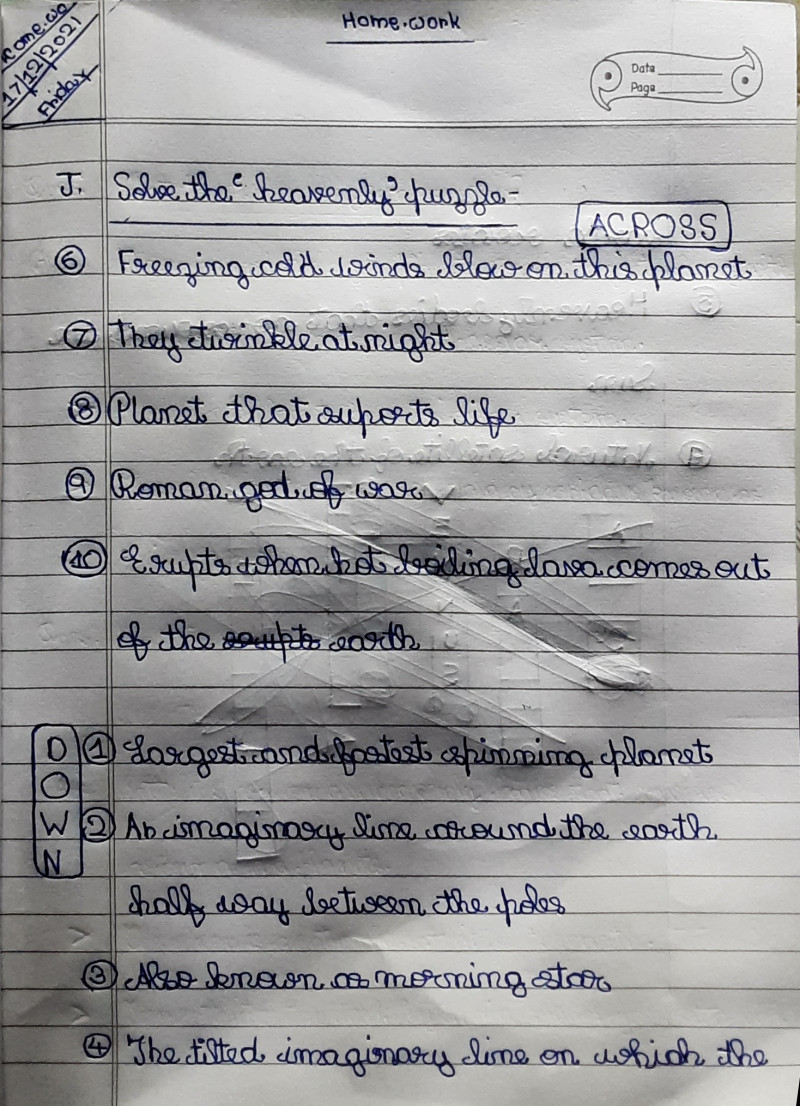 Home.wo
17/12/2021
Friday
Home.work
Date
Page
J. Solve the "heavenly" puzzle-
ACROSS
6 Freezing cold winds blow on this planet
7 They twinkle at night
8 Planet that suports life
9 Roman god of war
10 Erupts when hot boiling lava comes out
of the earth
DOWN
1 Largest and fastest spinning planet
2 An imaginary line around the earth
half way between the poles
3 Also known as morning star
4 The tilted imaginary line on which the